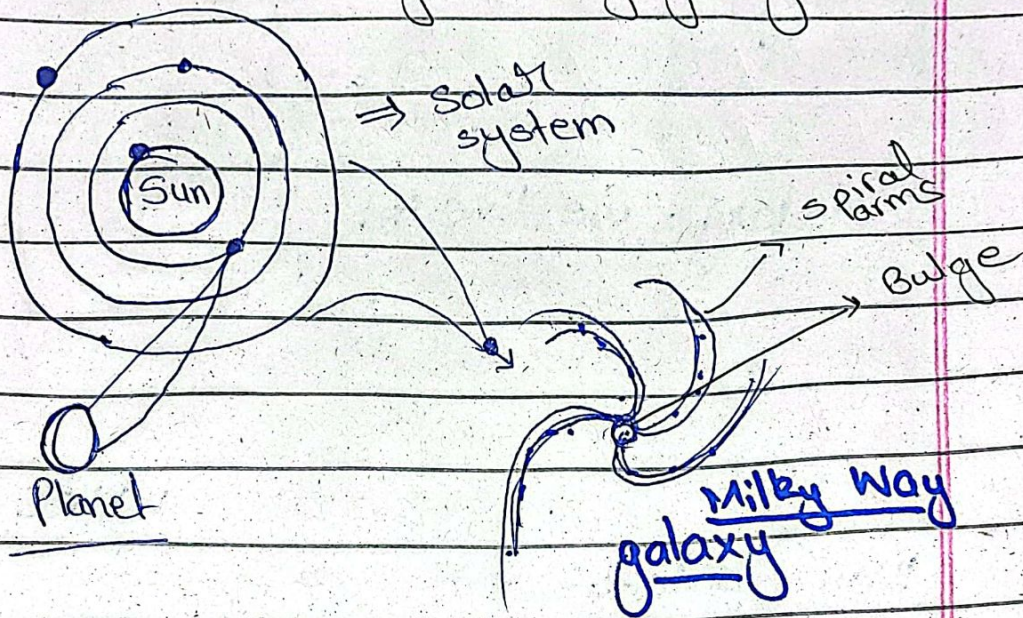 ⇒ Solar
system
Sun
spiral
arms
Bulge
Planet
Milky Way
galaxy